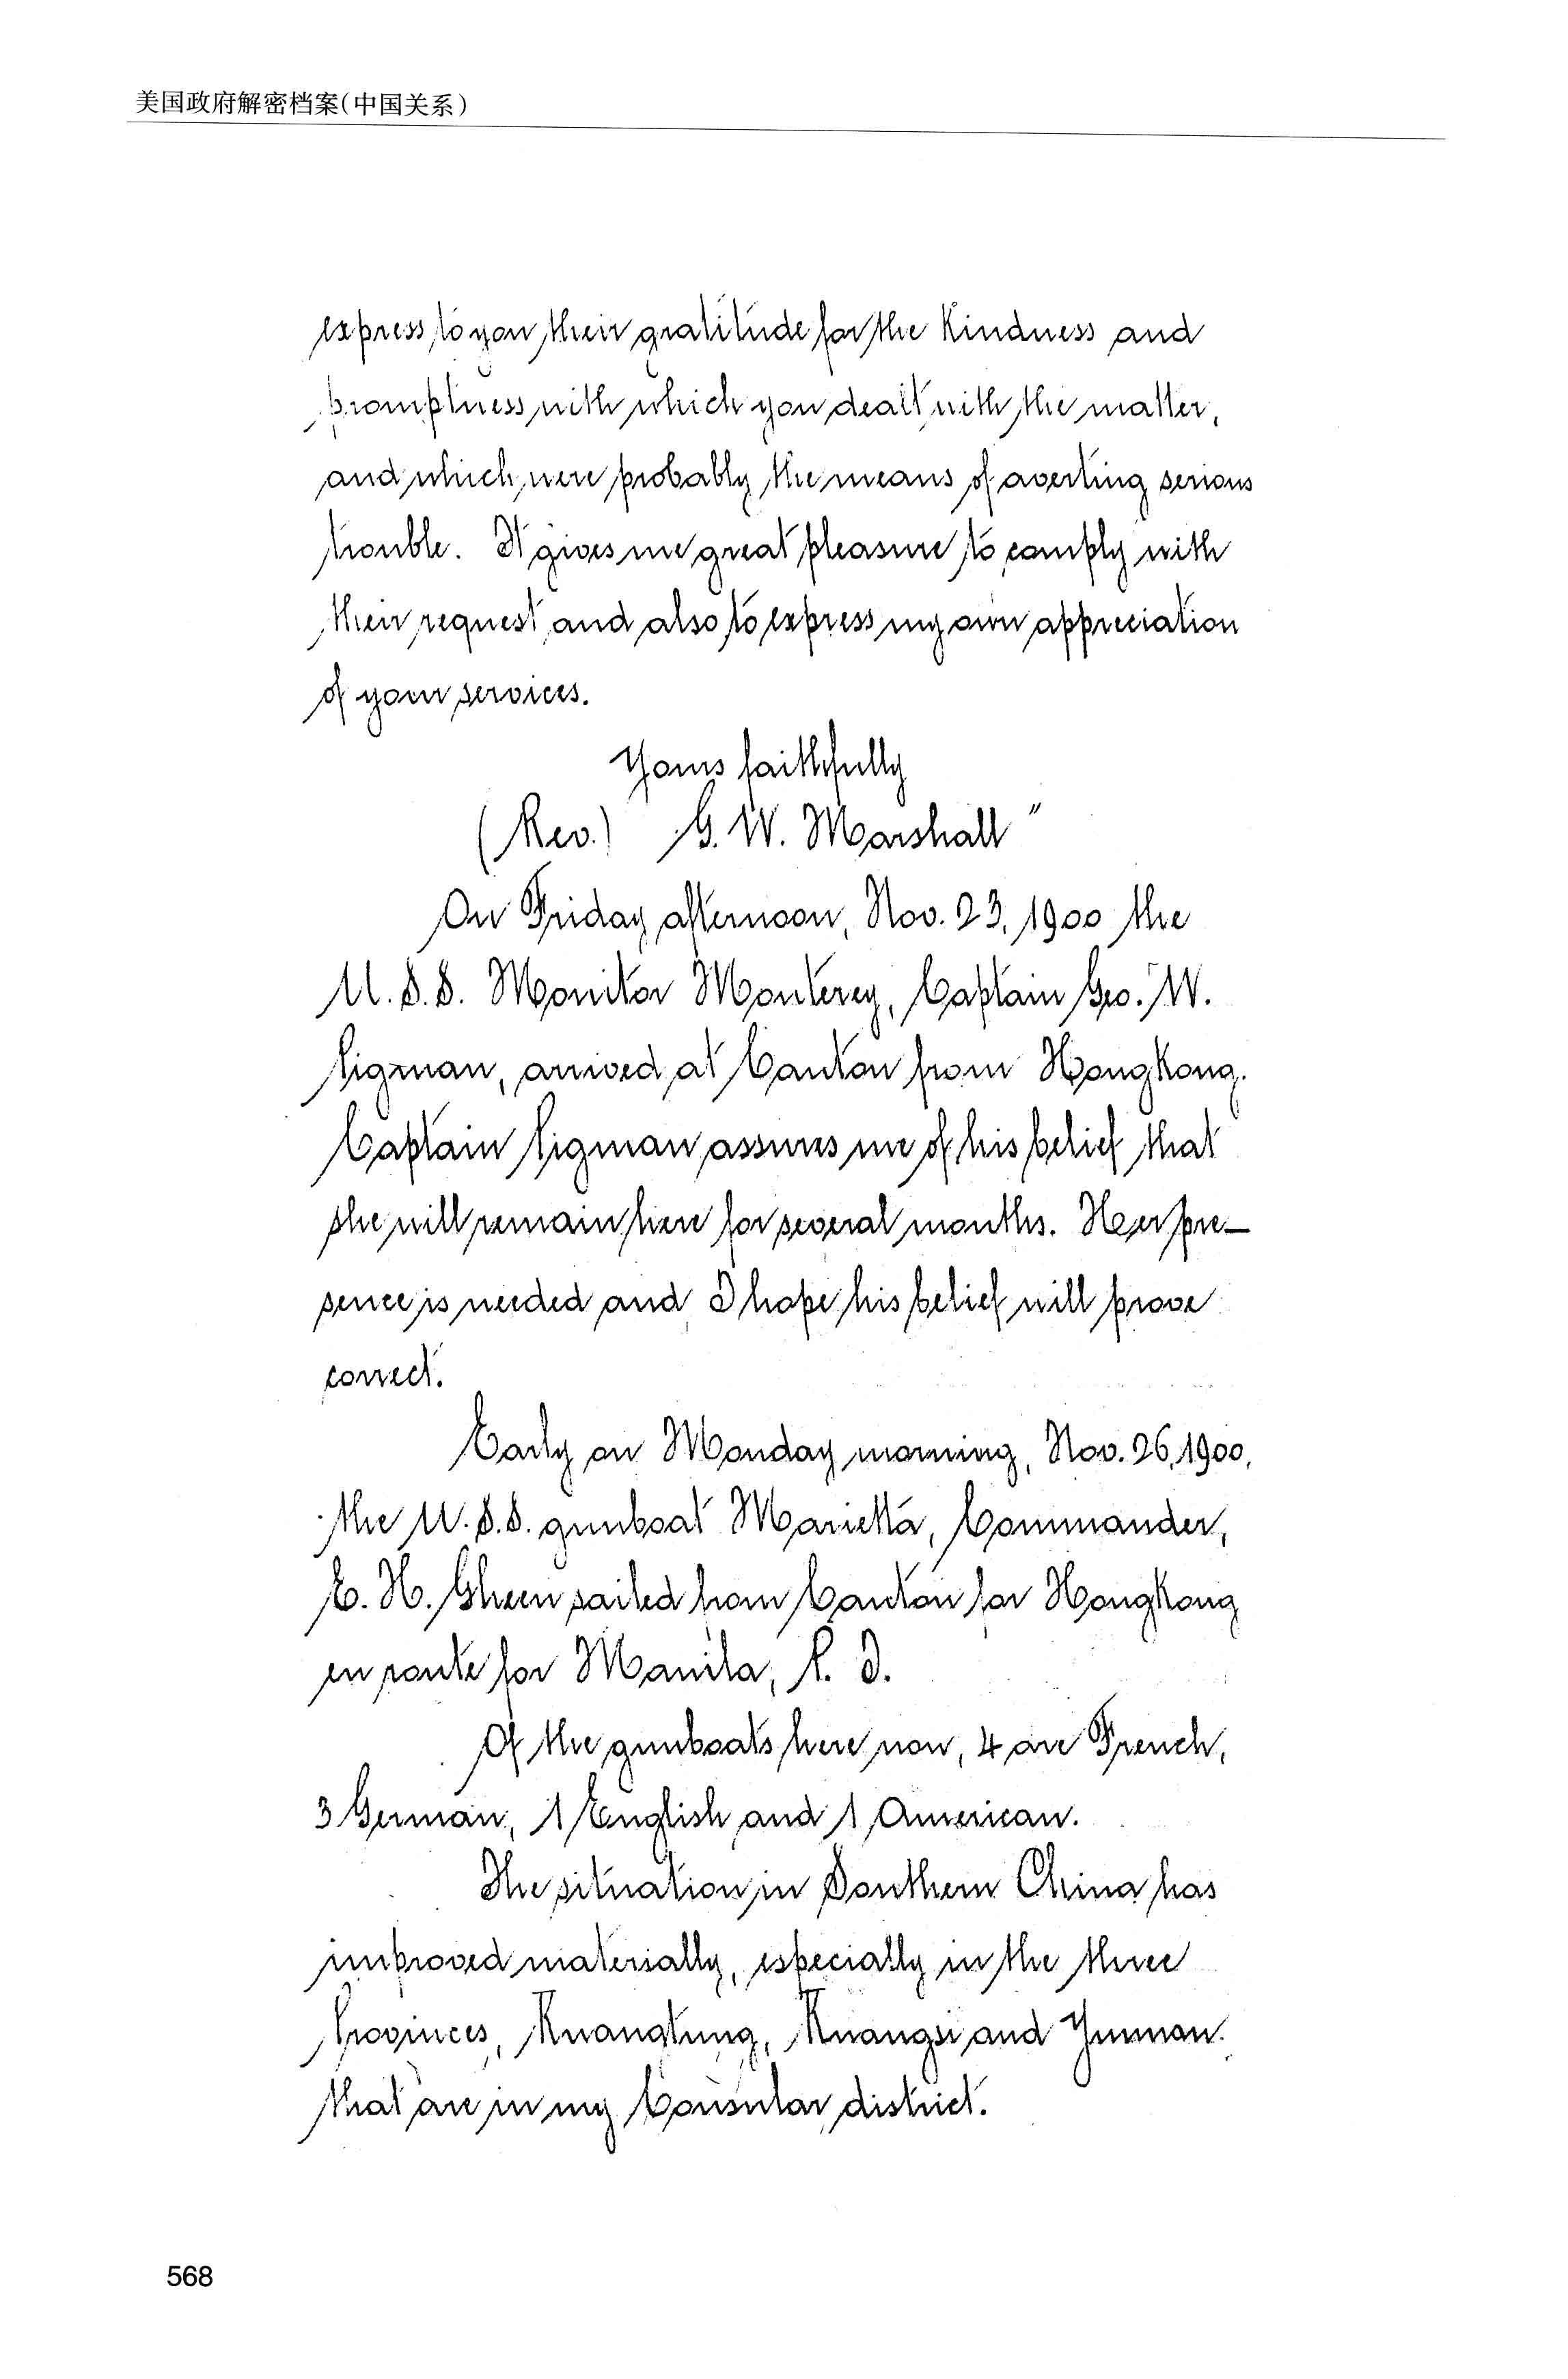 美国政府解密档案(中国关系)
express to you their gratitude for the kindness and
promptness with which you dealt with the matter,
and which were probably the means of averting serious
trouble. It gives me great pleasure to comply with
their request and also to express my own appreciation
of your services.
Yours faithfully
(Rev.) G. W. Marshall"
On Friday afternoon, Nov. 23, 1900 the
U.S.S. Monitor Monterey, Captain Geo. W.
Pigman, arrived at Canton from Hongkong.
Captain Pigman assures me of his belief that
she will remain here for several months. Her pre-
sence is needed and I hope his belief will prove
correct.
Early on Monday morning, Nov. 26, 1900,
the U.S.S. gunboat Marietta, Commander,
E. H. Gheen sailed from Canton for Hongkong
en route for Manila, P. I.
Of the gunboats here now, 4 are French,
3 German, 1 English and 1 American.
The situation in Southern China has
improved materially, especially in the three
Provinces, Kuangtung, Kuangsi and Yunnan.
that are in my Consular district.
568